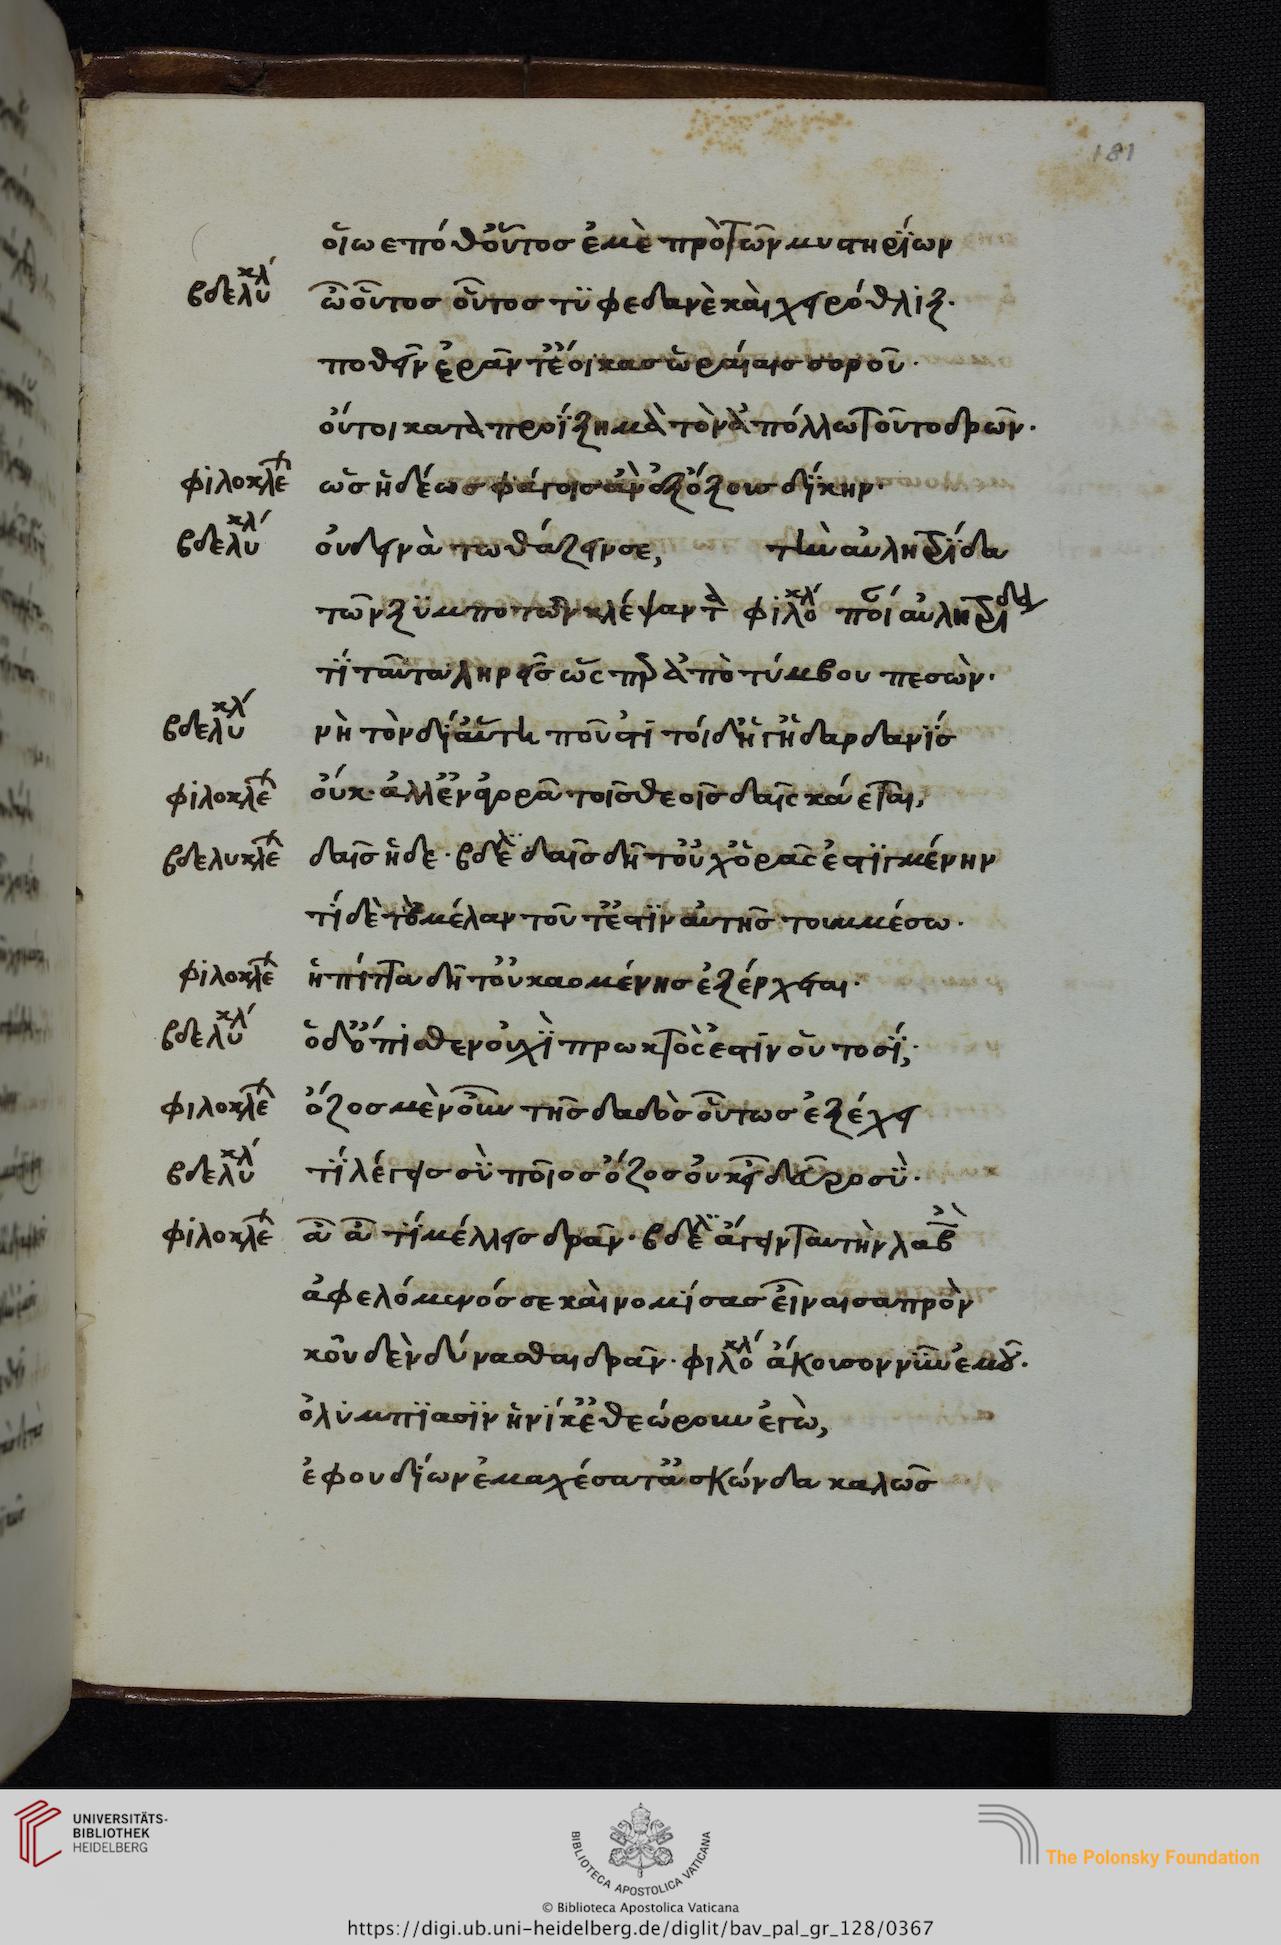 181
οἵω επό θοὗτος ἐμὲ πρὸ τῶν μυστηρίων
βδελυκλ ὦ οὗτος οὗτος τυφεδανὲ καὶ χειρόθλιξ.
ποθεῖν ἐρᾶν τ' ἔοικας ὡραίαις σοροῦ.
οὔτοι καταπροΐξη μὰ τὸν ἀπόλλω τοῦτο δρῶν.
φιλοκλέ ὡς ἡδέως φάγοις ἂν ὀξ ὄξους δίκην.
βδελυκλ οὐ δεινὰ τωθάζειν σε, τὴν αὐλητρίδα
τῶν ξυμποτῶν κλέψαντα φιλοκλ ποίαν αὐλητρίδα
τί ταῦτα ληρεῖς ὥσπερ ἀπὸ τύμβου πεσών.
βδελυκλ νὴ τὸν δί' αὕτη ποῦ στί τοι δή γ' ἡ δαρδανίς
φιλοκλέ οὔκ. ἀλλ' ἐν ἀγορᾶ τοῖς θεοῖς δαῒς κάεται,
βδελυκλέ δαῒς ἥδε. βδελ δαῒς δῆτ' οὐχ ὁρᾶς ἐστιγμένην
τί δὲ τὸ μέλαν τοῦτ' ἐστιν αὐτῆς τουν μέσω.
φιλοκλέ ἡ πίττα δήτ' οὐ καομένης ἐξέρχεται.
βδελυκλ ὁ δ' ὄπισθεν οὐχὶ πρωκτός ἐστιν οὑτοσί;
φιλοκλέ ὄζος μὲν οὖν τῆς δαδὸς οὗτως ἐξέχει
βδελυκλ τί λέγεις σὺ ποῖος ὄζος οὐκ εἶ δεῦρο σύ.
φιλοκλέ ἆ ἆ τί μέλλεις δρᾶν. βδελ ἄγειν ταύτην λαβὼν
ἀφελόμενός σε καὶ νομίσας εἶναι σαπρὸν
κοὐδὲν δύνασθαι δρᾶν. φιλοκλ ἄκουσον νῦν ἐμοῦ.
ὀλύμπιασιν ἡνίκ' ἐθεώρουν ἐγὼ,
ἐφουδίων ἐμαχέσατ' ἀσκώνδα καλῶς
UNIVERSITÄTS-
BIBLIOTHEK
HEIDELBERG
BIBLIOTECA APOSTOLICA VATICANA
The Polonsky Foundation
© Biblioteca Apostolica Vaticana
https://digi.ub.uni-heidelberg.de/diglit/bav_pal_gr_128/0367